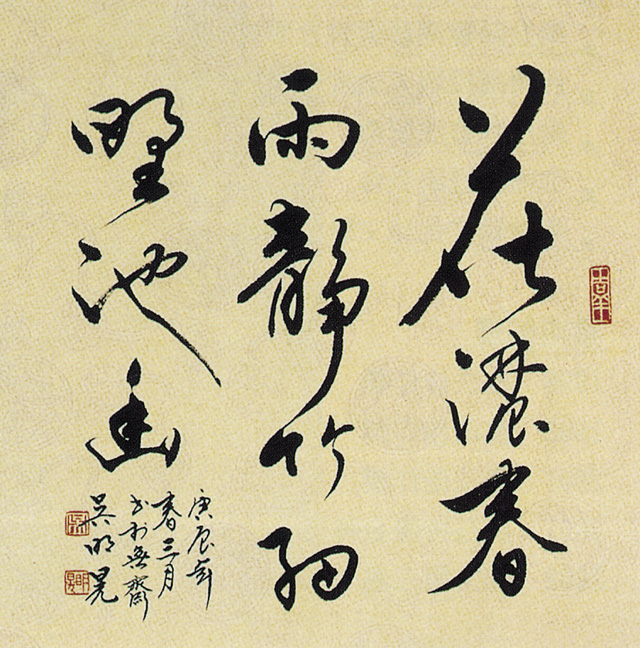 花濃春
雨靜竹細
野池幽
庚辰年
春三月
书於齋
吴明晃